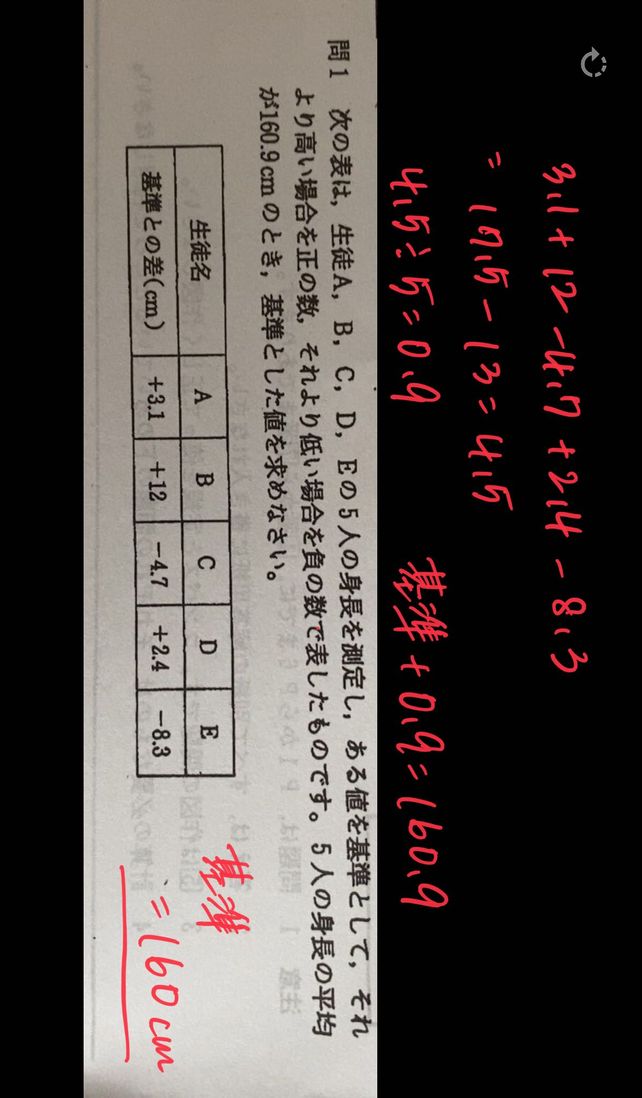 3.1+12-4.7+2.4-8.3
=17.5-13=4.5
4.5÷5=0.9 基準+0.9=160.9
問1 次の表は，生徒A，B，C，D，Eの5人の身長を測定し，ある値を基準として，それ
より高い場合を正の数，それより低い場合を負の数で表したものです。5人の身長の平均
が160.9cmのとき，基準とした値を求めなさい。
生徒名 A B C D E
基準との差(cm) +3.1 +12 -4.7 +2.4 -8.3
基準
=160cm